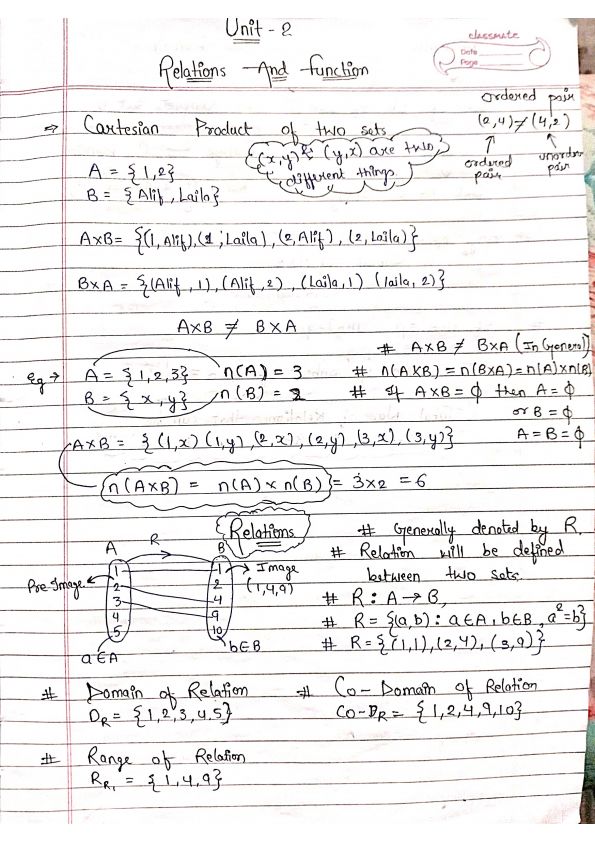 Unit - 2
classmate
Date
Page
Relations And function
ordered pair
(2,4) ≠ (4,2)
ordered pair
unorder pair
⇒ Cartesian Product of two sets
(x,y) & (y,x) are two
different things
A = {1,2}
B = {Alif, Laila}
A×B = {(1, Alif), (1, Laila), (2, Alif), (2, Laila)}
B×A = {(Alif, 1), (Alif, 2), (Laila, 1) (laila, 2)}
A×B ≠ B×A
# A×B ≠ B×A (In General)
Eg → A = {1,2,3} n(A) = 3
# n(A×B) = n(B×A) = n(A)×n(B)
B = {x, y} n(B) = 2
# If A×B = ϕ then A = ϕ
or B = ϕ
A = B = ϕ
A×B = {(1,x) (1,y), (2,x), (2,y), (3,x), (3,y)}
n(A×B) = n(A) × n(B) = 3×2 = 6
Relations
# Generally denoted by R.
# Relation will be defined
between two sets.
# R : A → B,
# R = {(a,b) : a∈A, b∈B, a²=b}
# R = {(1,1), (2,4), (3,9)}
A R B
Pre-Image
1 2 3 4 5
1 2 4 9 10
Image
(1,4,9)
a∈A
b∈B
# Domain of Relation
D_R = {1,2,3,4,5}
# Co-Domain of Relation
Co-D_R = {1,2,4,9,10}
# Range of Relation
R_R₁ = {1,4,9}